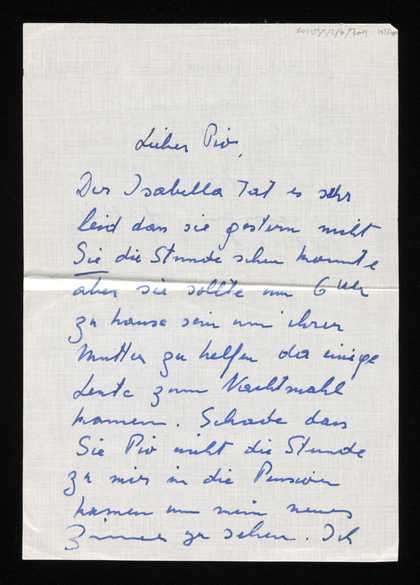 Lieber Pio,
Der Isabella Tat es sehr
leid dass sie gestern nicht
Sie die Stunde sehen konnte
aber sie sollte um 6 Uhr
zu hause sein um ihrer
Mutter zu helfen da einige
Leute zum Nachtmahl
kamen. Schade dass
Sie Pio nicht die Stunde
zu mir in die Pension
kamen um mein neues
Zimmer zu sehen. Ich